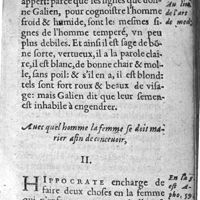 appert: parce que les signes que don-
ne Galien, pour cognoistre l'homme
froid & humide, sont les mesmes si-
gnes de l'homme temperé, vn peu
plus debiles. Et ainsi il est sage de bõ-
ne sorte, vertueux, il a la parole clai-
re, il est blanc, de bonne chair & mol-
le, sans poil: & s'il en a, il est blond:
tels sont fort roux & beaux de visa-
ge: mais Galien dit que leur semen-
est inhabile à engendrer.
Au liu.
de l'art
de med.
Auec quel homme la femme se doit ma-
rier afin de conceuoir,
II.
HIPPOCRATE encharge de
faire deux choses en la femme
En la 5.
est A-
pho. 59.